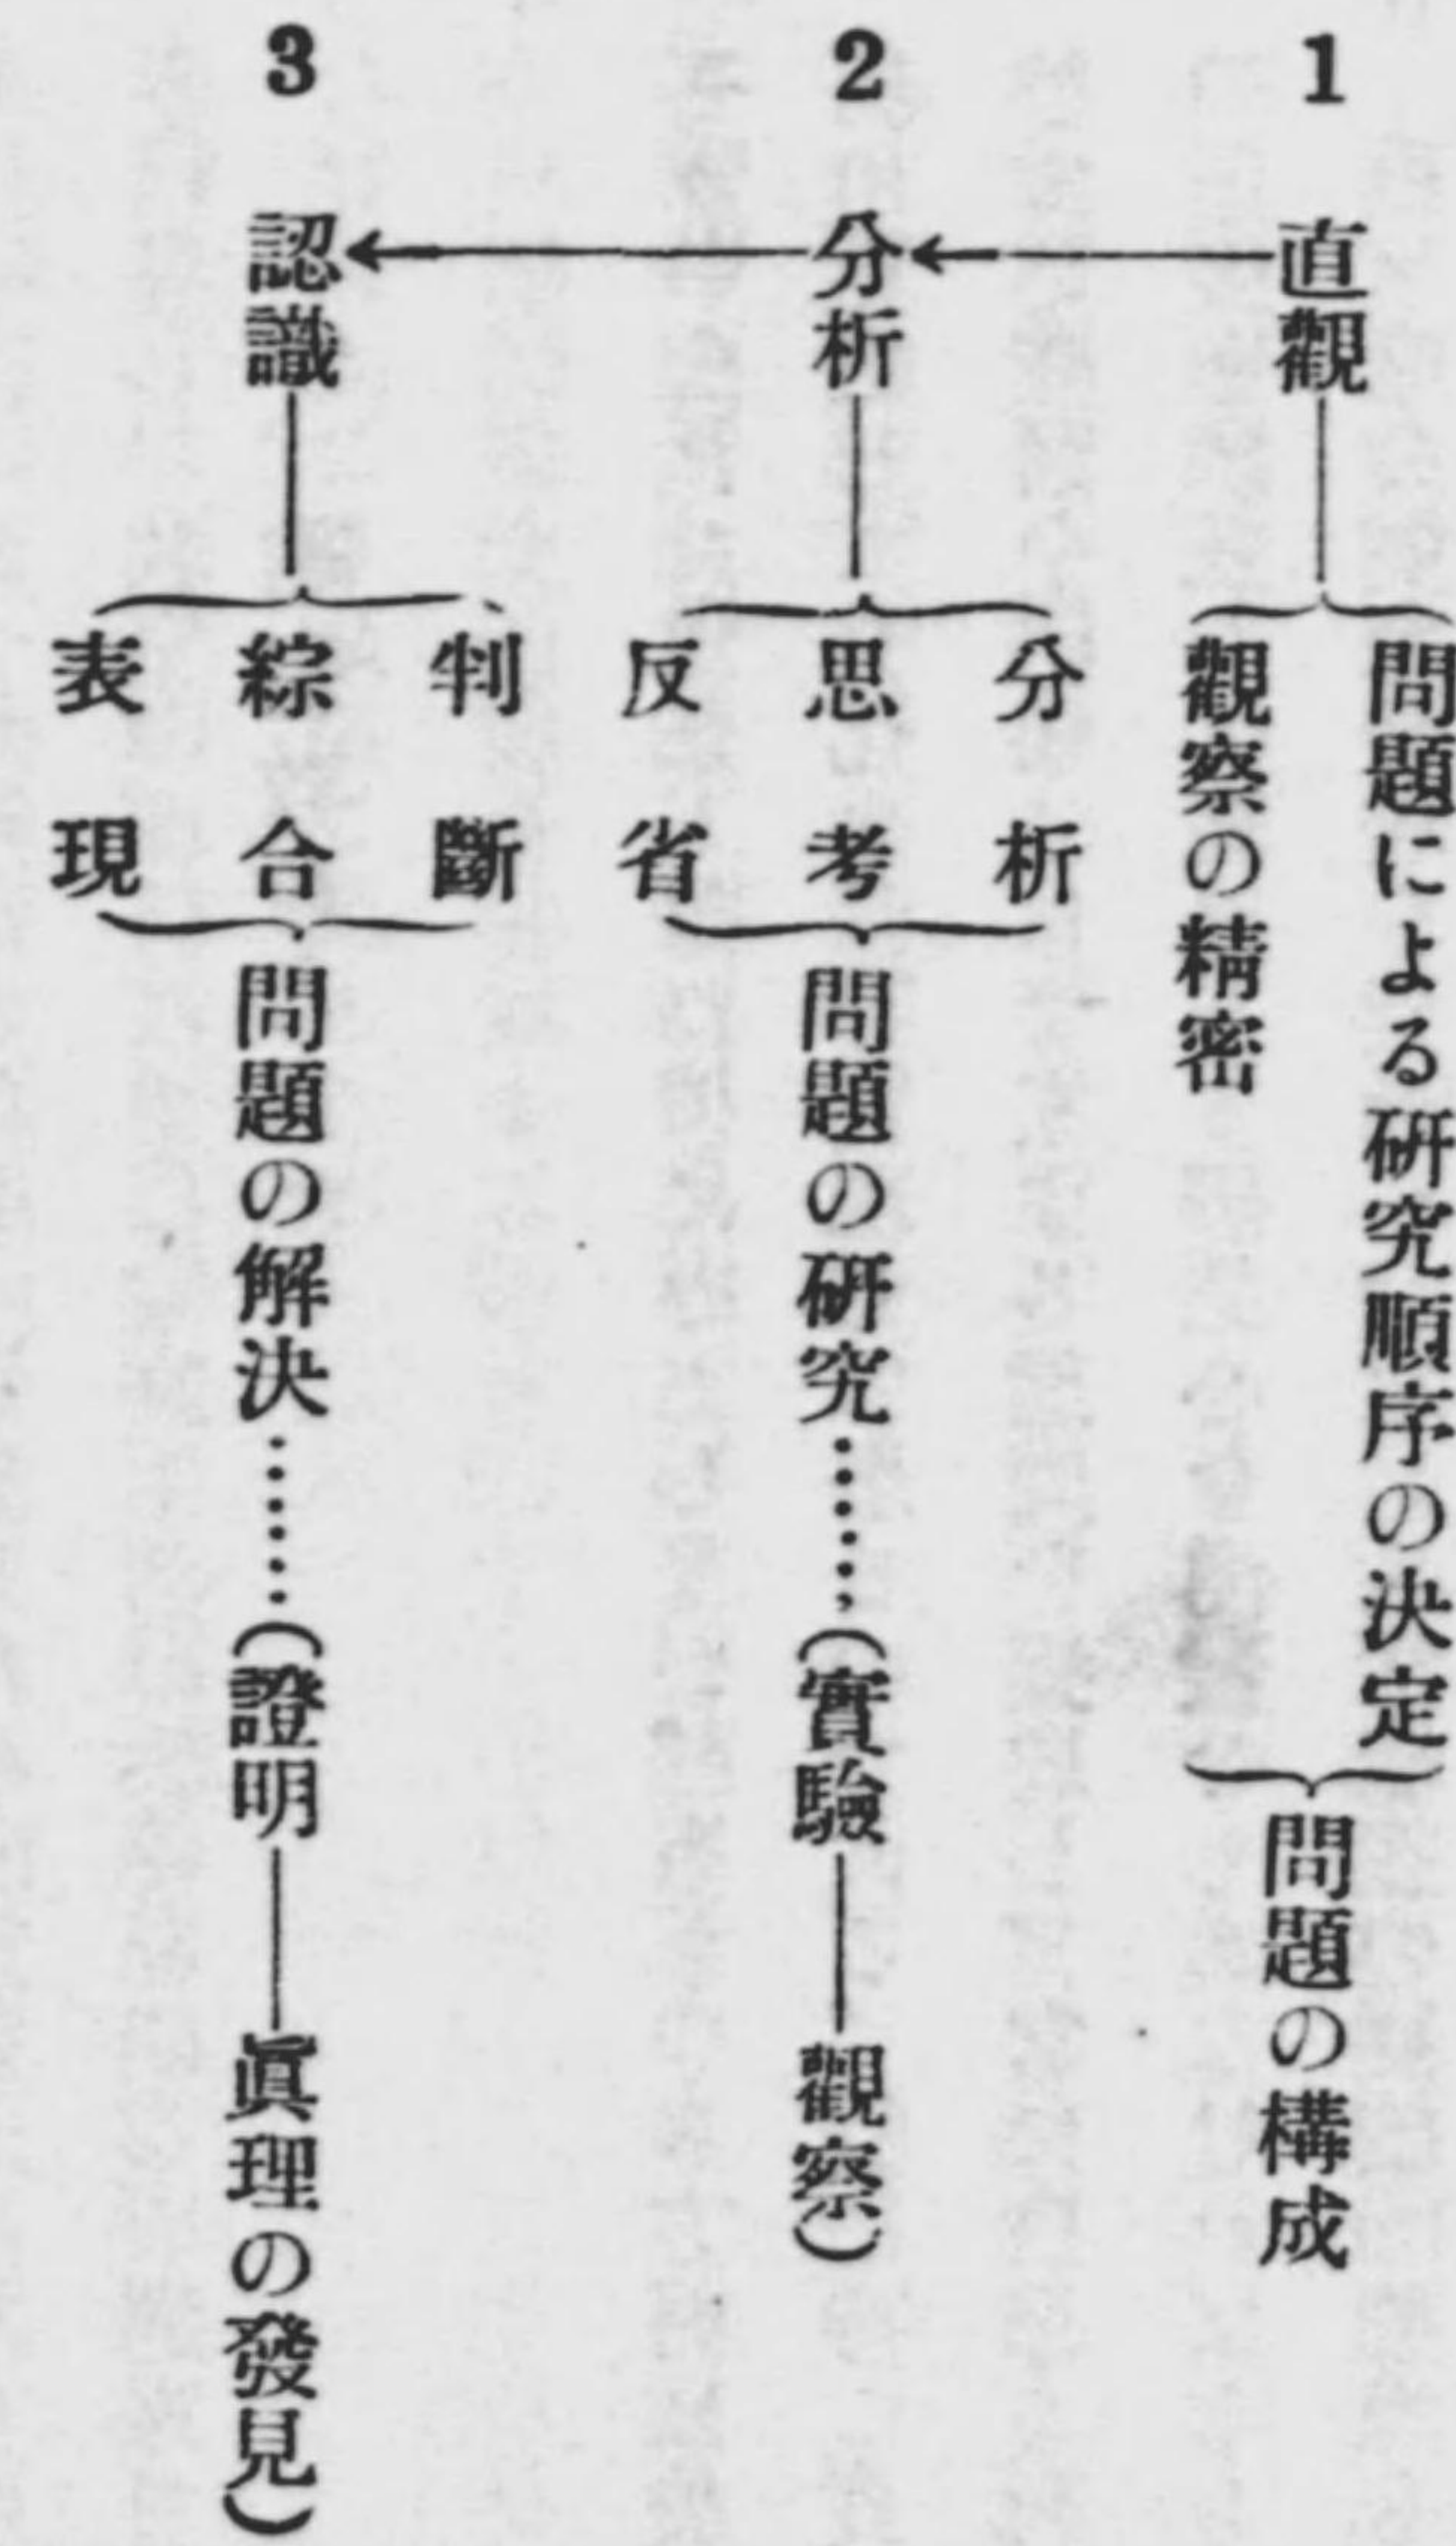 1
直觀
問題による研究順序の決定
觀察の精密
問題の構成
2
分析
分析
思考
反省
問題の研究……(實驗——觀察)
3
認識
判斷
綜合
表現
問題の解決……(證明——眞理の發見)